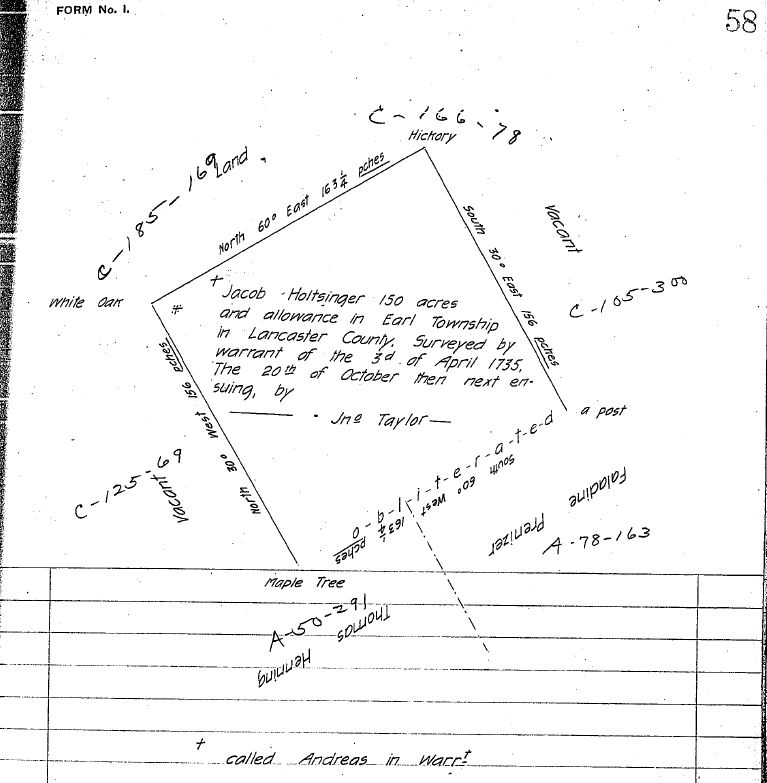 FORM No. I.
58
C-166-78
Hickory
C-185-169
Land
North 60° East 163¼ pches
South 30° East 156 pches
Vacant
C-105-300
White Oak
*
+
Jacob Holtsinger 150 acres
and allowance in Earl Township
in Lancaster County. Surveyed by
warrant of the 3d of April 1735.
The 20th of October then next en-
suing, by
Jno Taylor
North 30° West 156 pches
C-125-69
Vacant
a post
o-b-l-i-t-e-r-a-t-e-d
South 60° West 163¼ pches
Faladine Prenizer
A-78-163
Maple Tree
A-50-291
Thomas Henning
+ called Andreas in Warrt